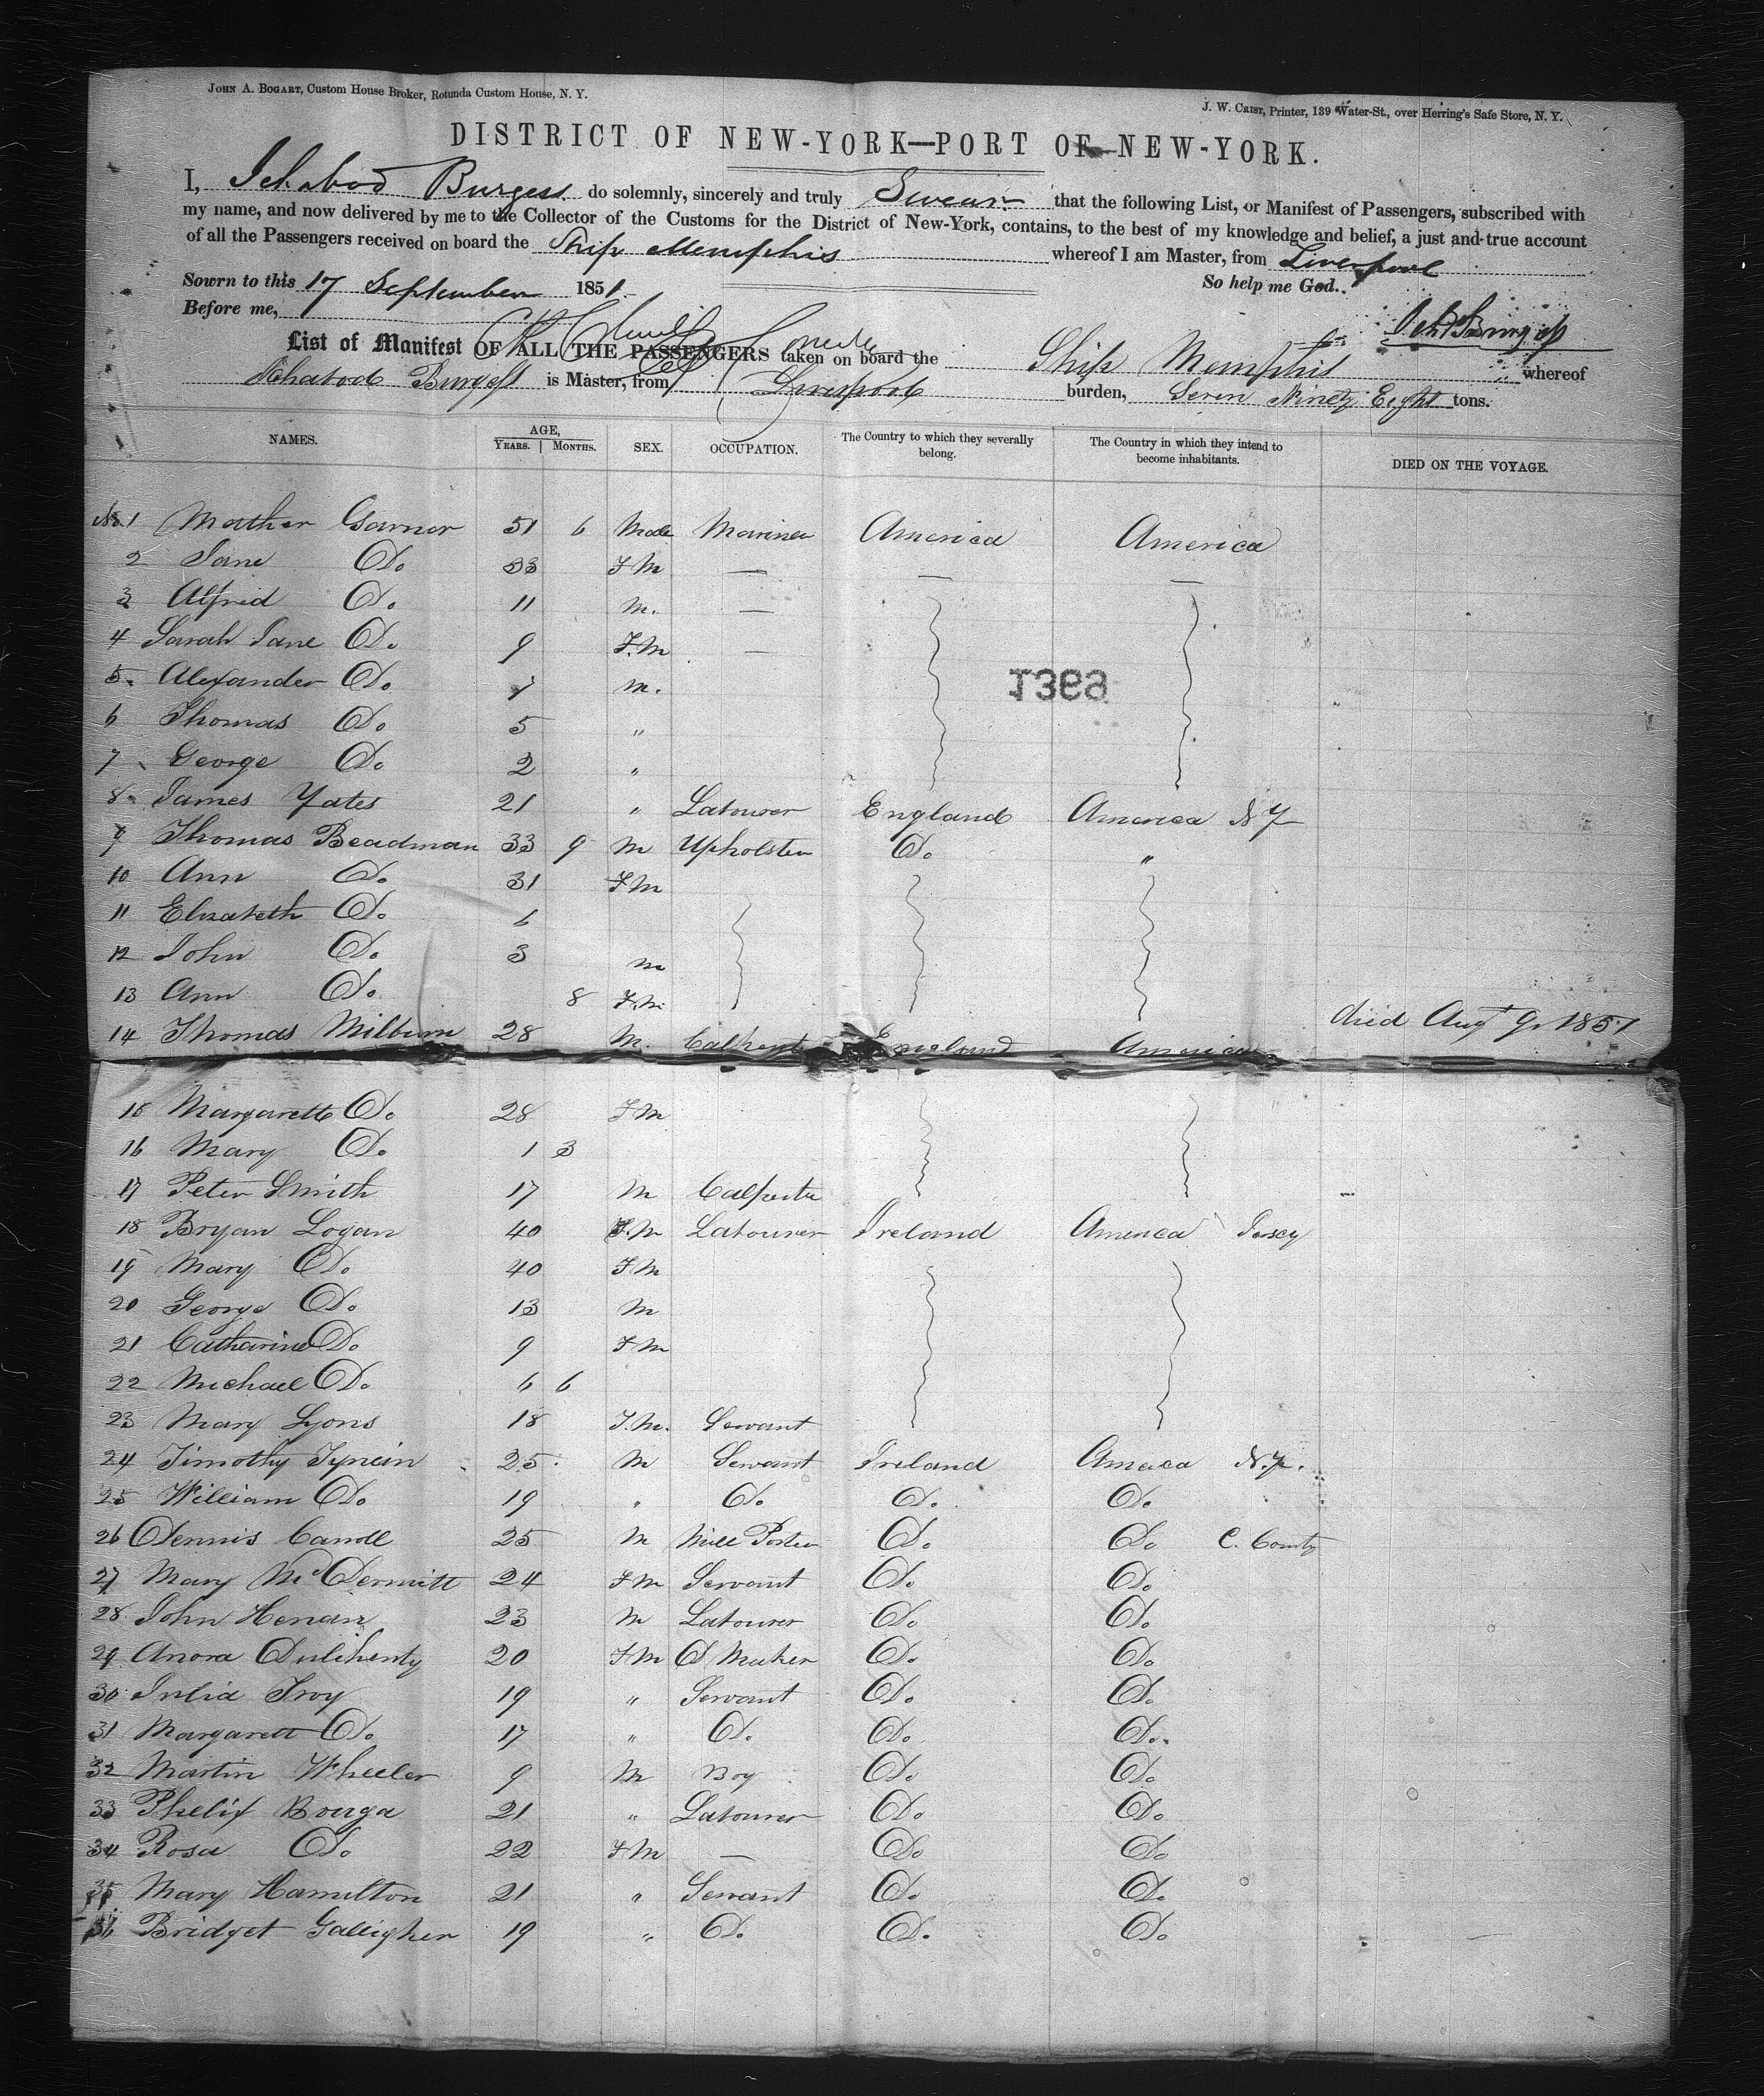 JOHN A. BOGART, Custom House Broker, Rotunda Custom House, N. Y.
J. W. CRIST, Printer, 139 Water-St., over Herring's Safe Store, N. Y.
DISTRICT OF NEW-YORK—PORT OF NEW-YORK.
I, Ichabod Burgess do solemnly, sincerely and truly Swear that the following List, or Manifest of Passengers, subscribed with
my name, and now delivered by me to the Collector of the Customs for the District of New-York, contains, to the best of my knowledge and belief, a just and true account
of all the Passengers received on board the Ship Memphis whereof I am Master, from Liverpool
Sowrn to this 17 September 1851. So help me God.
Before me, Ich Burgess
List of Manifest OF ALL THE PASSENGERS taken on board the Ship Memphis whereof
Ichabod Burgess is Master, from Liverpool burden, Seven Ninety Eight tons.
NAMES. AGE, YEARS. MONTHS. SEX. OCCUPATION. The Country to which they severally belong. The Country in which they intend to become inhabitants. DIED ON THE VOYAGE.
No. 1 Mather Garnor 51 6 Male Mariner America America
2 Jane Do 33 F M —  — —
3 Alfrid Do 11 M. —
4 Sarah Jane Do 9 F. M —
5 Alexander Do 7 M.
1369
6 Thomas Do 5 "
7 George Do 2 "
8 James Yates 21 " Labourer England America N Y
9 Thomas Beadman 33 9 M Upholster Do "
10 Ann Do 31 F M
11 Elizabeth Do 6
12 John Do 3 M
13 Ann Do 8 F. M. died Aug 9, 1851
14 Thomas Milburn 28 M. England America
15 Margarett Do 28 F M
16 Mary Do 1 3
17 Peter Smith 17 M Calpenter
18 Bryan Logan 40 M Labourer Ireland America Jersey
19 Mary Do 40 F M
20 George Do 13 M
21 Catharine Do 9 F M
22 Michael Do 6 6
23 Mary Lyons 18 F. M. Servant
24 Timothy 25 M Servant Ireland America N. Y.
25 William Do 19 " Do Do. Do.
26 Dennis Caroll 25 M Mill Porter Do. Do C. County
27 Mary McDermitt 24 F M Servant Do. Do.
28 John Henan 23 M Labourer Do. Do.
29 Anora 20 F M D Maker Do. Do.
30 Julia Troy 19 " Servant Do. Do.
31 Margarett Do. 17 " Do. Do. Do.
32 Martin Wheeler 9 M Boy Do. Do.
33 Phelix Bourga 21 " Labourer Do. Do.
34 Rosa Do. 22 F M — Do Do
35 Mary Hamilton 21 " Servant Do. Do.
36 Bridget Galligher 19 " Do. Do. Do.